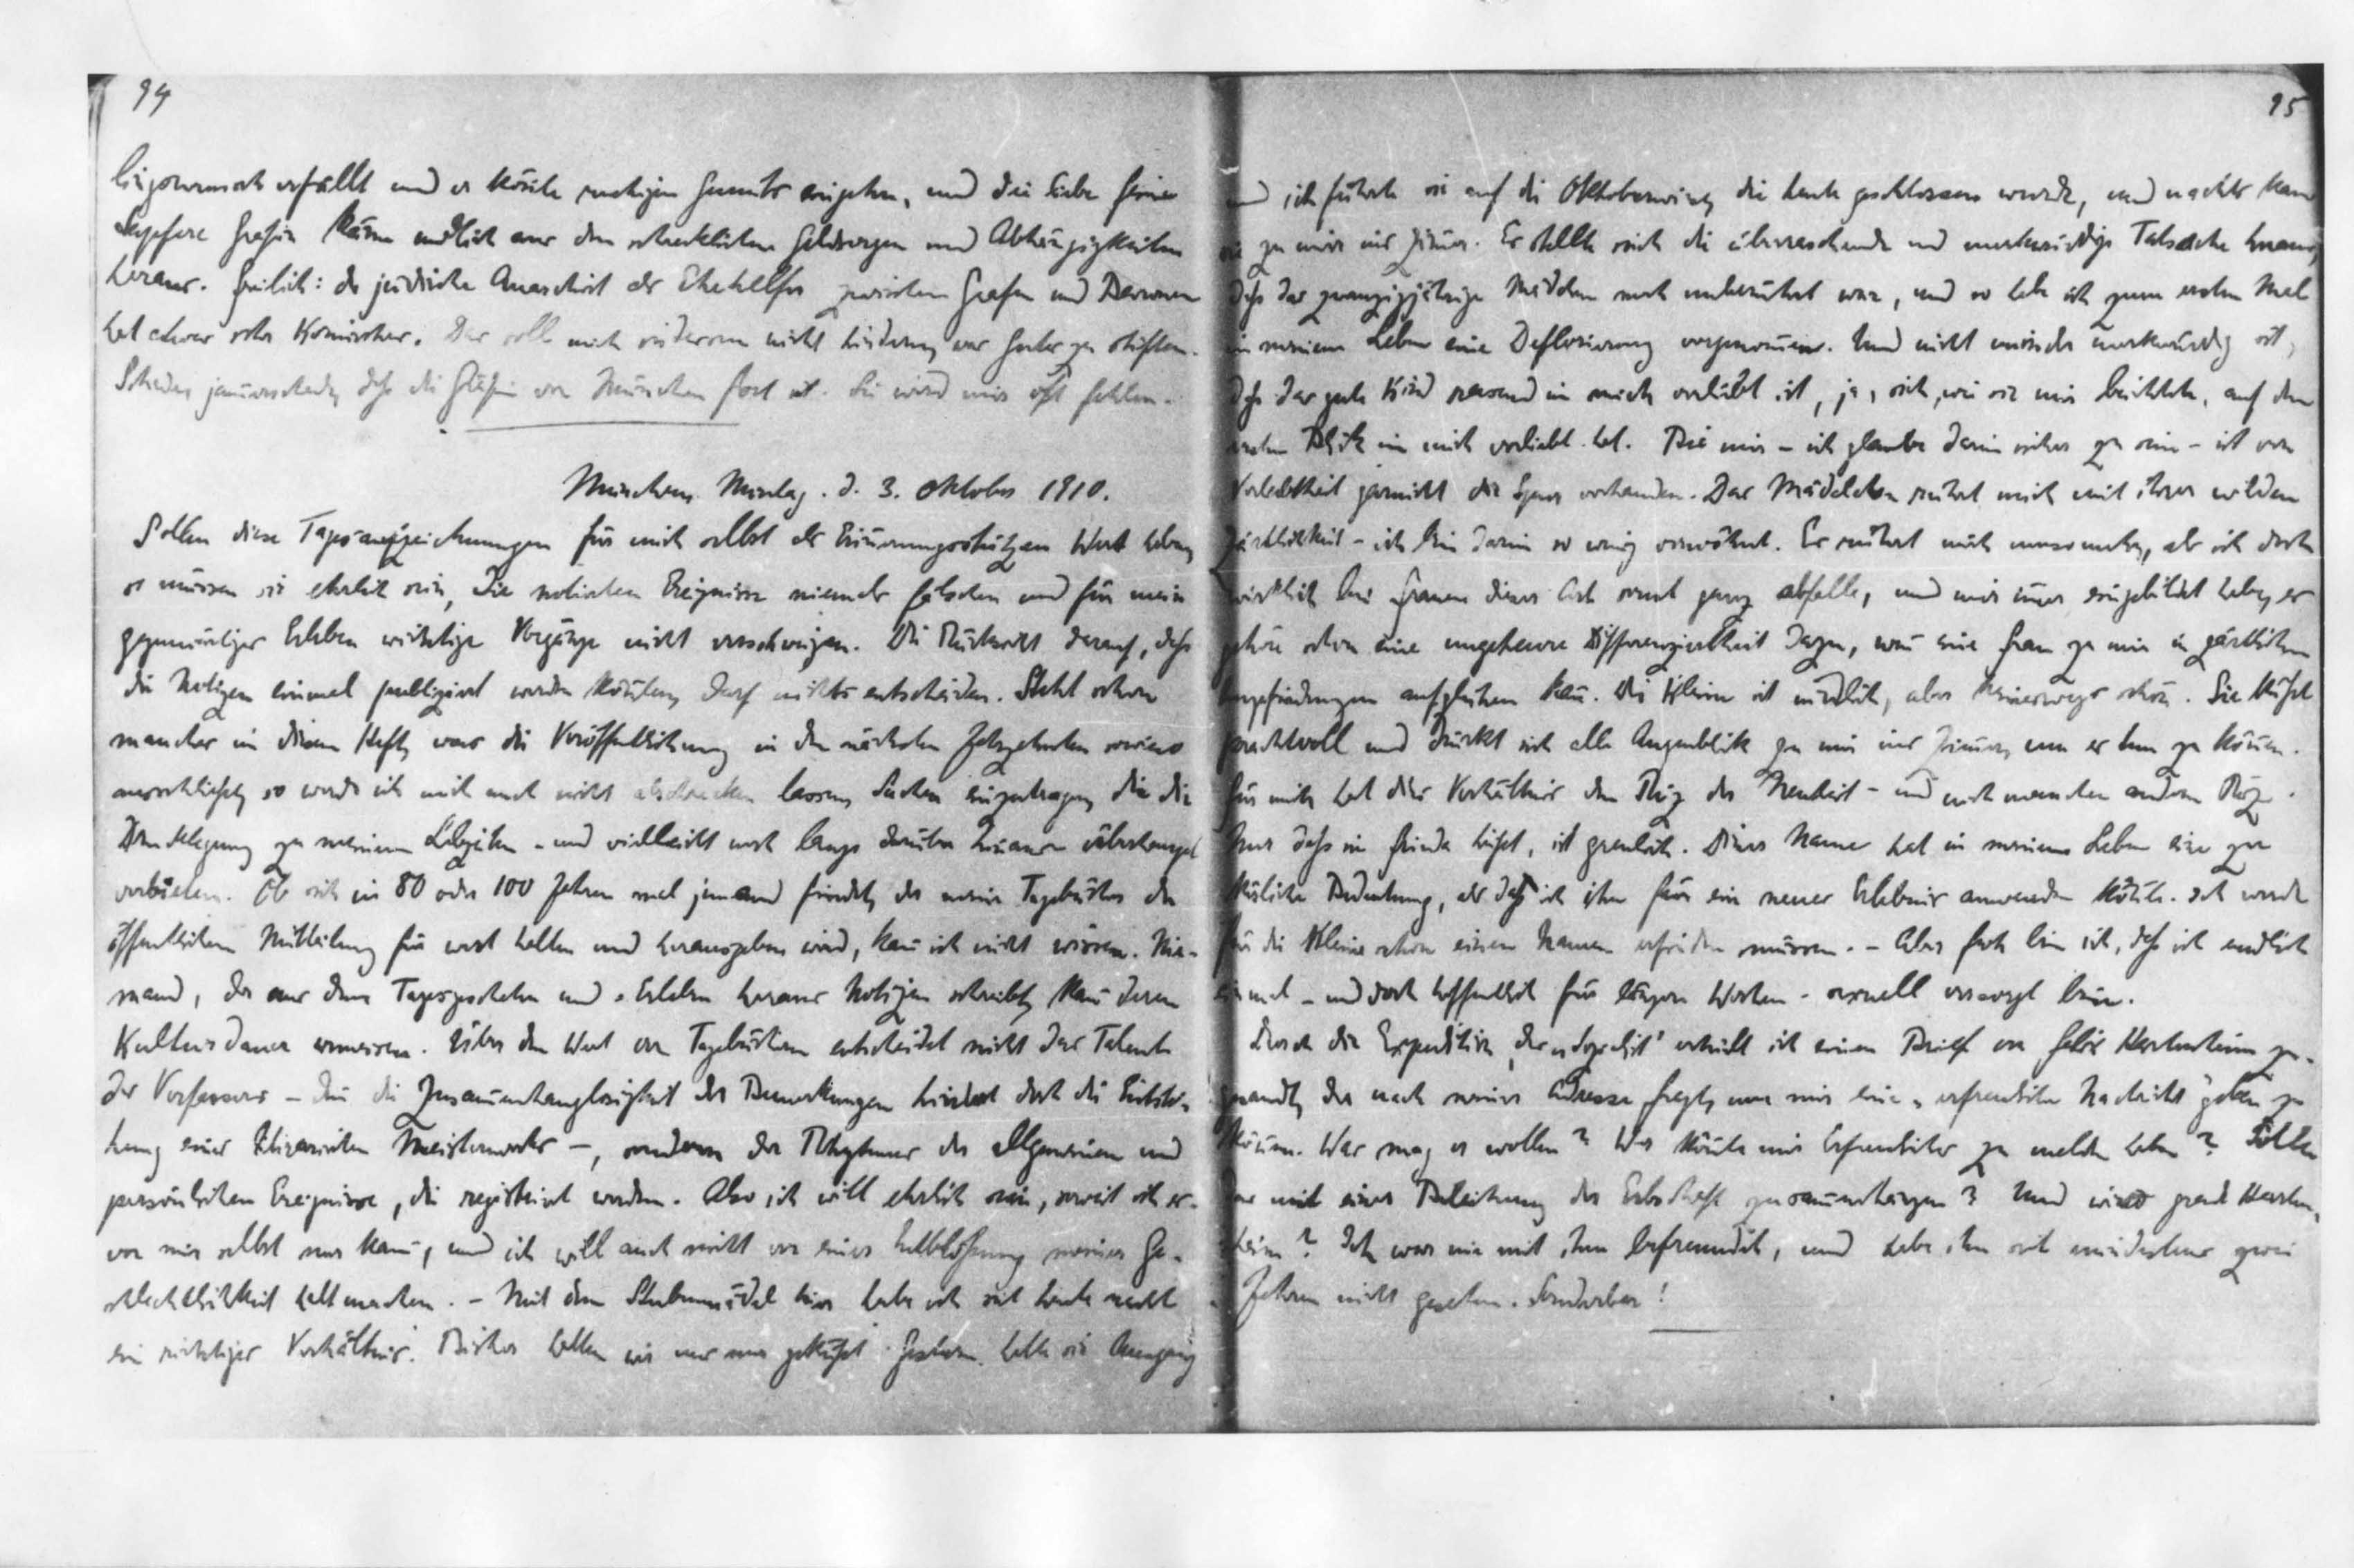 94
lingswunsch erfüllt und er könnte ruhigen Gemüts eingehen, und die liebe feine
tapfere Gräfin käme endlich aus den schrecklichen Geldsorgen und Abhängigkeiten
heraus. Freilich: der jüdische Anarchist als Ehehelfer zwischen Grafen und Baronen
hat etwas sehr Komisches. Das soll mich indessen nicht hindern, was Gutes zu stiften.
Schade, jammerschade, daß die Gräfin von München fort ist. Sie wird mir oft fehlen.
München, Montag, d. 3. Oktober 1910.
Sollen diese Tagesaufzeichnungen für mich selbst als Erinnerungsstützen Wert haben,
so müssen sie ehrlich sein, die notierten Ereignisse niemals fälschen und für mein
gegenwärtiges Erleben wichtige Vorgänge nicht verschweigen. Die Rücksicht darauf, daß
die Notizen einmal publiziert werden könnten, darf nichts entscheiden. Steht schon
manches in diesem Heft, was die Veröffentlichung in den nächsten Jahrzehnten sowieso
ausschließt, so werde ich mich auch nicht abschrecken lassen, Sachen einzutragen, die die
Drucklegung zu meinen Lebzeiten – und vielleicht noch lange darüber hinaus überhaupt
verbieten. Ob sich in 80 oder 100 Jahren mal jemand findet, der meine Tagebücher der
öffentlichen Mitteilung für wert halten und herausgeben wird, kann ich nicht wissen. Nie-
mand, der aus dem Tagesgeschehen und -Erleben heraus Notizen schreibt, kann deren
Kulturdauer ermessen. Über den Wert von Tagebüchern entscheidet nicht das Talent
des Verfassers – denn die Zusammenhanglosigkeit der Bemerkungen hindert doch die Entste-
hung eines literarischen Meisterwerks –, sondern der Rhythmus der allgemeinen und
persönlichen Ereignisse, die registriert werden. Also ich will ehrlich sein, soweit ich es
vor mir selbst nur kann, und ich will auch nicht vor einer Entblößung meiner Ge-
schlechtlichkeit haltmachen. – Mit dem Stubenmädel hier habe ich seit heute nacht
ein richtiges Verhältnis. Bisher hatten wir uns nur geküßt. Gestern hatte sie Ausgang
95
und ich führte sie auf die Oktoberwiese, die heute geschlossen wurde, und nachts kam
sie zu mir ins Zimmer. Es stellte sich die überraschende und merkwürdige Tatsache heraus,
daß das zwanzigjährige Mädchen noch unberührt war, und so habe ich zum ersten Mal
in meinem Leben eine Deflorierung vorgenommen. Und nicht minder merkwürdig ist,
daß das gute Kind rasend in mich verliebt ist, ja, sich, wie sie mir beichtete, auf den
ersten Blick in mich verliebt hat. Bei mir – ich glaube darin sicher zu sein – ist von
Verliebtheit garnicht die Spur vorhanden. Das Mädelchen rührt mich mit ihrer wilden
Zärtlichkeit – ich bin darin so wenig verwöhnt. Es rührt mich umsomehr, als ich doch
wirklich bei Frauen dieser Art sonst ganz abfalle, und mir immer eingebildet habe, es
gehöre schon eine ungeheure Differenziertheit dazu, wenn eine Frau zu mir in zärtlichen
Empfindungen aufglühen kann. Die Kleine ist niedlich, aber keineswegs schön. Sie küßt
prachtvoll und drückt sich alle Augenblick zu mir ins Zimmer, um es tun zu können.
Für mich hat dies Verhältnis den Reiz der Neuheit – und noch manchen andern Reiz.
Nur daß sie Frieda heißt, ist greulich. Dieser Name hat in meinem Leben eine zu
köstliche Bedeutung, als daß ich ihn für ein neues Erlebnis anwenden könnte. Ich werde
für die Kleine schon einen Namen erfinden müssen. – Aber froh bin ich, daß ich endlich
einmal – und doch hoffentlich für längere Wochen – sexuell versorgt bin.
Durch die Expedition des „Sozialist“ erhielt ich einen Brief von Felix Hartenstein zu-
gesandt, der nach meiner Adresse fragt, um mir eine „erfreuliche Nachricht“ geben zu
können. Was mag er wollen? Was könnte mir Erfreuliches zu melden haben? Sollte
das mit einer Beleihung der Erbschaft zusammenhängen? Und wieso grade Harten-
stein? Ich war nie mit ihm befreundet, und habe ihn seit mindestens zwei
Jahren nicht gesehen. Sonderbar!